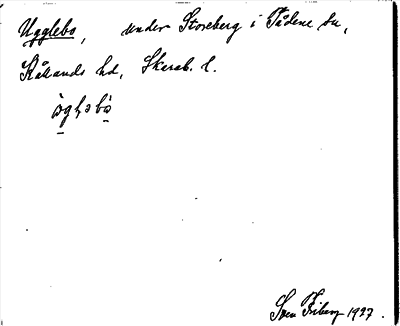 Ugglebo, under Storeberg i Tådene sn,
Kållands hd, Skarab. l.
Sven Friberg 1927.